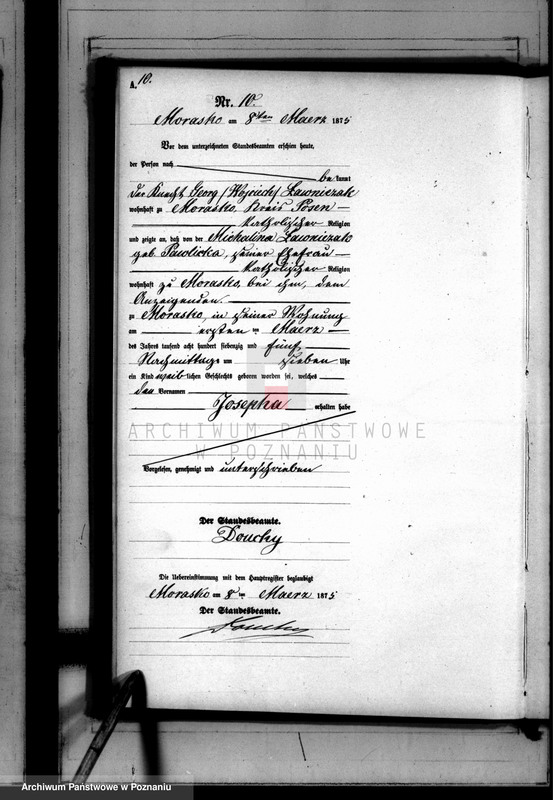 A.
10.
Nr. 10.
Morasko am 8ten Maerz 1875
Vor dem unterzeichneten Standesbeamten erschien heute,
der Person nach
bekannt
der Knecht Georg (Wojciech) Lawniczak
wohnhaft zu Morasko, Kreis Posen
katholischer Religion
und zeigte an, daß von der Michalina Lawniczak
geb. Pawlicka, seiner Ehefrau
katholischer Religion
wohnhaft zu Morasko, bei ihm, dem
Anzeigenden.
zu Morasko, in seiner Wohnung
am ersten ten Maerz
des Jahrs tausend acht hundert siebenzig und fünf
Nachmittags um sieben Uhr
ein Kind weiblichen Geschlechts geboren worden sei, welches
den Vornamen
Josepha erhalten habe
ARCHIWUM PAŃSTWOWE
W POZNANIU
Vorgelesen, genehmigt und unterschrieben
Der Standesbeamte.
Douchy
Die Uebereinstimmung mit dem Hauptregister beglaubigt
Morasko am 8 ten Maerz 1875
Der Standesbeamte.
Archiwum Państwowe w Poznaniu